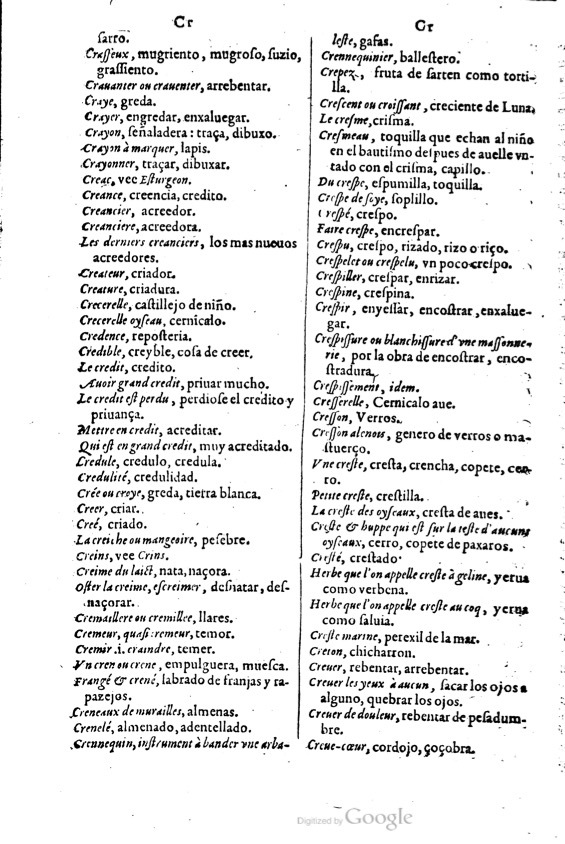 Cr
ſarro.
Craſſeux, mugriento, mugroſo, ſuzio,
graſſiento.
Crauanter ou crauenter, arrebentar.
Craye, greda.
Crayer, engredar, enxaluegar.
Crayon, ſeñaladera: traça, dibuxo.
Crayon à marquer, lapis.
Crayonner, traçar, dibuxar.
Creac, vee Eſturgeon.
Creance, creencia, credito.
Creancier, acreedor.
Creanciere, acreedora.
Les derniers creanciers, los mas nueuos
acreedores.
Createur, criador.
Creature, criadura.
Crecerelle, caſtillejo de niño.
Crecerelle oyſeau, cernicalo.
Credence, repoſteria.
Credible, creyble, coſa de creer.
Le credit, credito.
Auoir grand credit, priuar mucho.
Le credit eſt perdu, perdioſe el credito y
priuança.
Mettre en credit, acreditar.
Qui eſt en grand credit, muy acreditado.
Credule, credulo, credula.
Credulité, credulidad.
Crée ou croye, greda, tierra blanca.
Creer, criar.
Creé, criado.
La creiche ou mangeoire, peſebre.
Creins, vee Crins.
Creime du laict, nata, naçora.
Oſter la creime, eſcreimer, deſnatar, deſ-
naçorar.
Cremaillere ou cremillee, llares.
Cremeur, quaſi tremeur, temor.
Cremir .i. craindre, temer.
Vn cren ou crene, empulguera, mueſca.
Frangé & crené, labrado de franjas y ra-
pazejos.
Creneaux de murailles, almenas.
Crenelé, almenado, adentellado.
Crennequin, inſtrument à bander vne arba-
Cr
leſte, gafas.
Crennequinier, balleſtero.
Crepez, fruta de ſarten como torti-
lla.
Creſcent ou croiſſant, creciente de Luna.
Le creſme, criſma.
Creſmeau, toquilla que echan al niño
en el bautiſmo deſpues de auelle vn-
tado con el criſma, capillo.
Du creſpe, eſpumilla, toquilla.
Creſpe de ſoye, ſoplillo.
Creſpé, creſpo.
Faire creſpe, encreſpar.
Creſpu, creſpo, rizado, rizo o riço.
Creſpelet ou creſpelu, vn poco creſpo.
Creſpiller, creſpar, enrizar.
Creſpine, creſpina.
Creſpir, enyeſſar, encoſtrar, enxalue-
gar.
Creſpiſſure ou blanchiſſure d'vne maſſonne-
rie, por la obra de encoſtrar, enco-
ſtradura.
Creſpiſſement, idem.
Creſſerelle, Cernicalo aue.
Creſſon, Verros.
Creſſon alenois, genero de verros o ma-
ſtuerço.
Vne creſte, creſta, crencha, copete, cer-
ro.
Petite creſte, creſtilla.
La creſte des oyſeaux, creſta de aues.
Creſte & huppe qui eſt ſur la teſte d'aucuns
oyſeaux, cerro, copete de paxaros.
Creſté, creſtado.
Herbe que l'on appelle creſte à geline, yerua
como verbena.
Herbe que l'on appelle creſte au coq, yerua
como ſaluia.
Creſte marine, perexil de la mar.
Creton, chicharron.
Creuer, rebentar, arrebentar.
Creuer les yeux à aucun, ſacar los ojos a
alguno, quebrar los ojos.
Creuer de douleur, rebentar de peſadum-
bre.
Creue-cœur, cordojo, çoçobra.
Digitized by Google